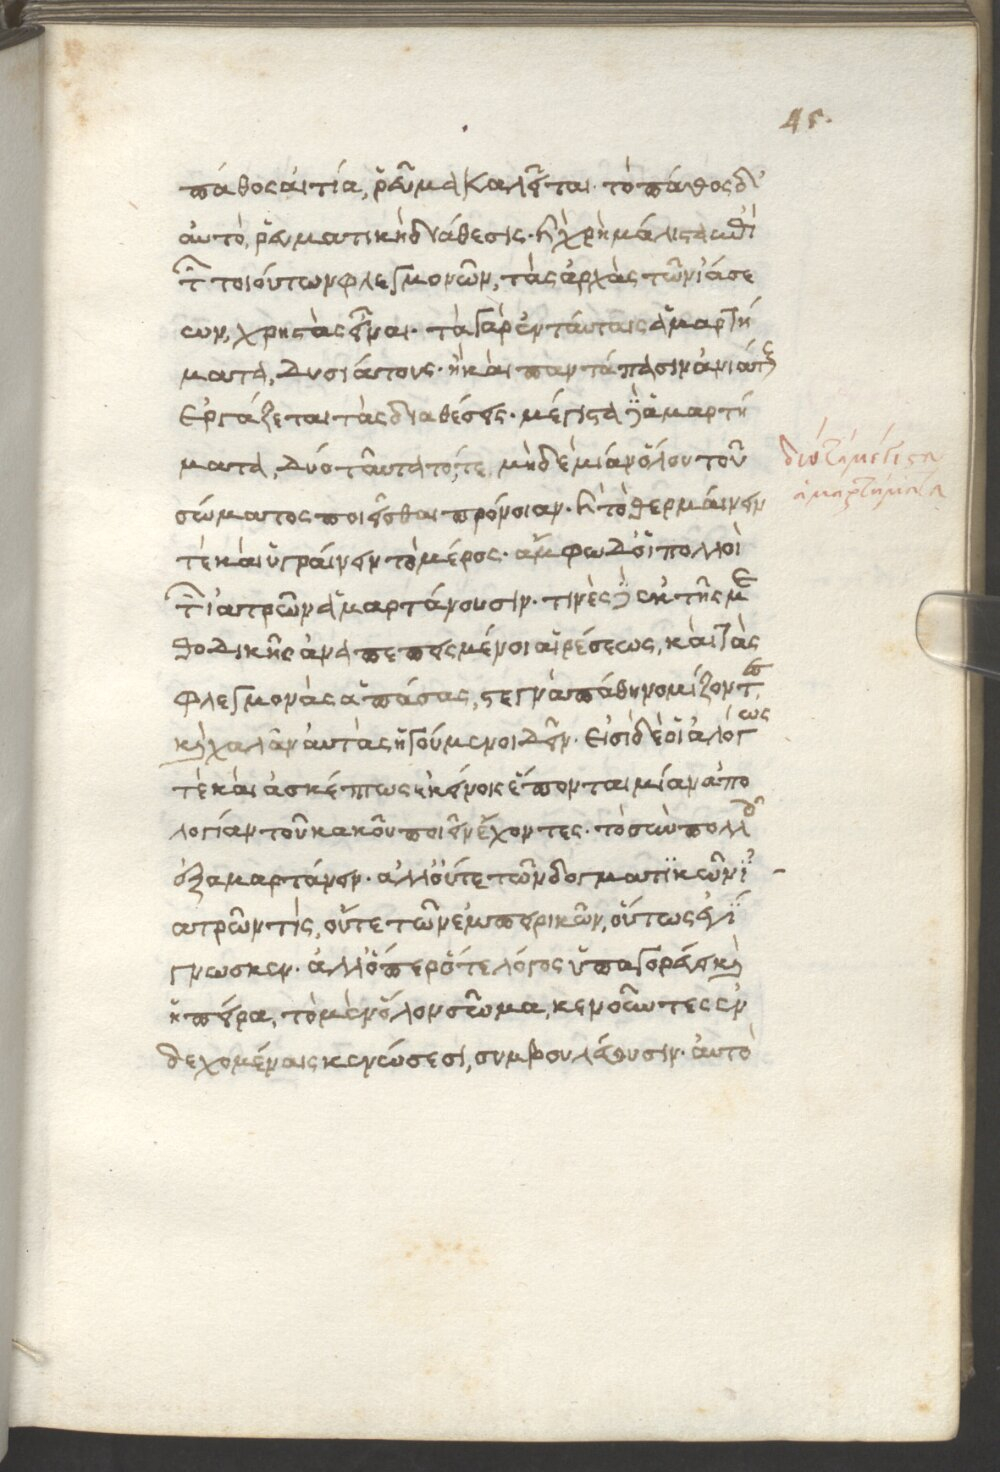 45.
πάθος αἰτία, ῥεῦμα καλεῖται. τὸ πάθος δ'
αὐτὸ, ῥευματικὴ διάθεσις. καὶ χρὴ μάλιστα ἐπὶ
τῶν τοιούτων φλεγμονῶν, τὰς ἀρχὰς τῶν ἰάσε
ων, χρηστὰς εἶναι. τὰ γὰρ ἐν ταύταις ἁμαρτή
ματα, δυσιάτους. ἢ καὶ παντάπασιν ἀνιάτους
ἐργάζεται τὰς διαθέσεις. μέγιστα δὲ ἁμαρτή
ματα, δύο ταῦτα τό, τε μηδεμίαν ὅλου τοῦ
σώματος ποιεῖσθαι πρόνοιαν. καὶ τὸ θερμαίνειν
τὲ καὶ ὑγραίνειν τὸ μέρος. ἄμφω δ' οἱ πολλοὶ
τῶν ἰατρῶν ἁμαρτάνουσιν. τινὲς δὲ ἐκ τῆς με
θοδικῆς ἀναπεπεισμένοι αἱρέσεως, καὶ τὰς
φλεγμονὰς ἁπάσας, στεγνὰ πάθη νομίζοντες
καὶ χαλᾶν αὐτὰς ἡγούμενοι δεῖν. εἰσὶ δὲ οἳ ἀλόγως
τὲ καὶ ἀσκέπτως ἐκείνοις ἕπονται μίαν ἀπο
λογίαν τοῦ κακοῦ ποιεῖν ἔχοντες. τὸ σὺν πολλοῖς
ἐξαμαρτάνειν. ἀλλ' οὔτε τῶν δογματικῶν ἰ
ατρῶν τίς, οὔτε τῶν ἐμπειρικῶν, οὕτως ἐγί
γνωσκεν. ἀλλ' ὅπερ ὅ τε λόγος ὑπαγορεύει καὶ
ἡ πεῖρα, τὸ μὲν ὅλον σῶμα, κενοῦντες ἐν
δεχομέναις κενώσεσι, συμβουλεύουσιν. αὐτὸ
δύο τὰ μέγιστα
ἁμαρτήματα